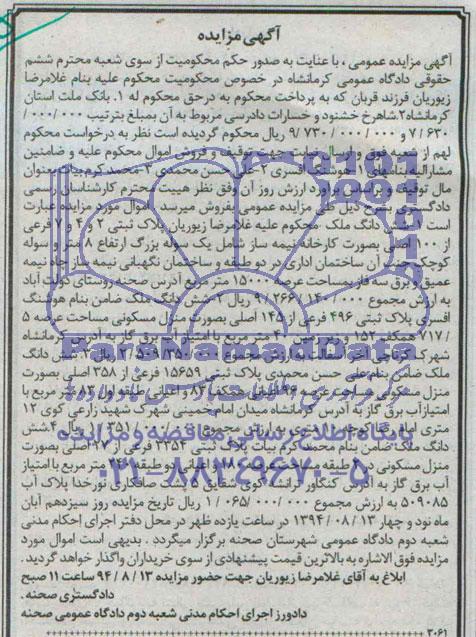 آگهی مزایده
آگهی مزایده عمومی ، با عنایت به صدور حکم محکومیت از سوی شعبه محترم ششم
حقوقی دادگاه عمومی کرمانشاه در خصوص محکومیت محکوم علیه بنام غلامرضا
زیوریان فرزند قربان که به پرداخت محکوم به درحق محکوم له ۱. بانک ملت استان
کرمانشاه۲.شاهرخ خشنود و خسارات دادرسی مربوط به آن بمبلغ بترتیب ۰۰۰/۰۰۰/
۷/۶۳۰ و ۰۰۰/۰۰۰/۹/۷۳۰ ریال محکوم گردیده است نظر به درخواست محکوم
لهم از شعبه فوق و جهت توقیف و فروش اموال محکوم علیه و ضامنین
مشارالیه بنامهای ۱.هوشنگ افسری ۲-علی حسن محمدی ۳-محمد کرم بیات بعنوان
مال توقیف و براساس برآورد ارزش روز آن وفق نظر هییت محترم کارشناسان رسمی
دادگستری بشرح ذیل طی مزایده عمومی بفروش میرسد . اموال مورد مزایده عبارت
است ۱-شش دانگ ملک محکوم علیه غلامرضا زیوریان پلاک ثبتی ۲ و ۴ و ۷ فرعی
از ۱۰۰ اصلی بصورت کارخانه نیمه ساز شامل یک سوله بزرگ ارتفاع ۸ متر و سوله
کوچک جنب آن ساختمان اداری در دو طبقه و ساختمان نگهبانی نیمه ساز چاه نیمه
عمیق و برق سه فاز بمساحت عرصه ۱۵۰۰۰ متر مربع آدرس صحنه روستای دولت آباد
به ارزش مجموع ۹/۲۶۶/۱۴۰/۰۰۰ ریال ۲.شش دانگ ملک ضامن بنام هوشنگ
افسری پلاک ثبتی ۴۹۶ فرعی از ۱۴۵ اصلی بصورت منزل مسکونی مساحت عرصه ۵
۷۱۷/ همکف ۱۵۲ و زیرزمین ۴۰ متر مربع با امتیاز آب برق گاز به آدرس کرمانشاه
شهرک به ارزش مجموع ریال ۳.شش دانگ
ملک ضامن بنام علی حسن محمدی پلاک ثبتی ۱۵۶۵۹ فرعی از ۳۵۸ اصلی بصورت
منزل مسکونی مساحت عرصه ۹۶ اعیانی همکف ۸۳ و اعیانی طبقه اول ۸۳ متر مربع با
امتیازآب برق گاز به آدرس کرمانشاه میدان امام خمینی شهرک شهید زارعی کوی ۱۲
متری امام رضا به ارزش مجموع ریال ۴.شش
دانگ ملک ضامن بنام محمد کرم بیات پلاک ثبتی فرعی از اصلی بصورت
منزل مسکونی در دو طبقه مساحت عرصه اعیانی دو طبقه متر مربع با امتیاز
آب برق گاز به آدرس کنگاور شقایق نورخدا پلاک آب
۵۰۹۰۸۵ به ارزش مجموع ۰۰۰/۰۰۰/۱/۰۶۵ ریال تاریخ مزایده روز سیزدهم آبان
ماه نود و چهار ۱۳۹۴/۰۸/۱۳ در ساعت یازده ظهر در محل دفتر اجرای احکام مدنی
شعبه دوم دادگاه عمومی شهرستان صحنه برگزار میگردد . بدیهی است اموال مورد
مزایده فوق الاشاره به بالاترین قیمت پیشنهادی از سوی خریداران واگذار خواهد گردید.
ابلاغ به آقای غلامرضا زیوریان جهت حضور مزایده ۹۴/۸/۱۳ ساعت ۱۱ صبح
دادگستری صحنه .
دادورز اجرای احکام مدنی شعبه دوم دادگاه عمومی صحنه
۳۰۶۱
ParsNamadData
پایگاه اطلاع رسانی مناقصه و مزایده
۰۲۱-۸۸۳۴۹۶۷۰-۵